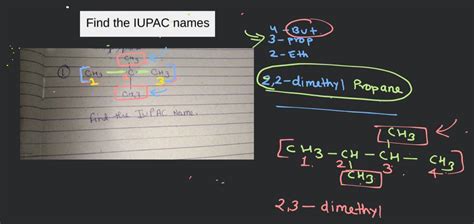 Find the IUPAC names
4 - But
3 - prop
2 - Eth
① CH3
CH3 — C — CH3
1 2 3
CH3
Find the IUPAC Name.
2,2-dimethyl Propane
CH3
CH3 — CH — CH — CH3
1. 2 3. 4.
CH3
2,3 — dimethyl